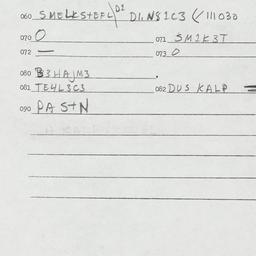 060 SMELKSTEFL\D1 DI.N81C3 (/111030
070 O 071 SM1K3T
072 — 073 O
080 B3HAJM3
081 TE4L3C3 082 DUS KALP =
090 PA StN